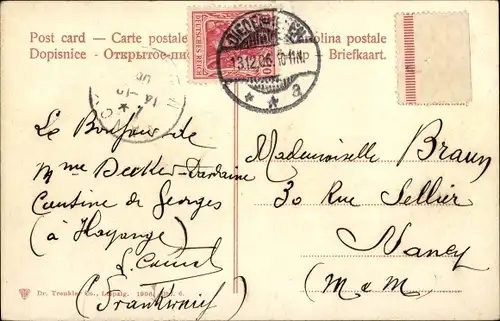 Post card — Carte postale
olina postale
Dopisnice — Открытое-
Briefkaart.
DEUTSCHES REICH
10
13.12.06. 10-11 N
* * a
Le Bonjour de
Mme Decker-
Cantine de Georges
(à Hayange)
(Frankreich)
Mademoiselle Braun
30 Rue Sellier
Nancy
(M & M)
Dr. Trenkler Co., Leipzig. 1906.